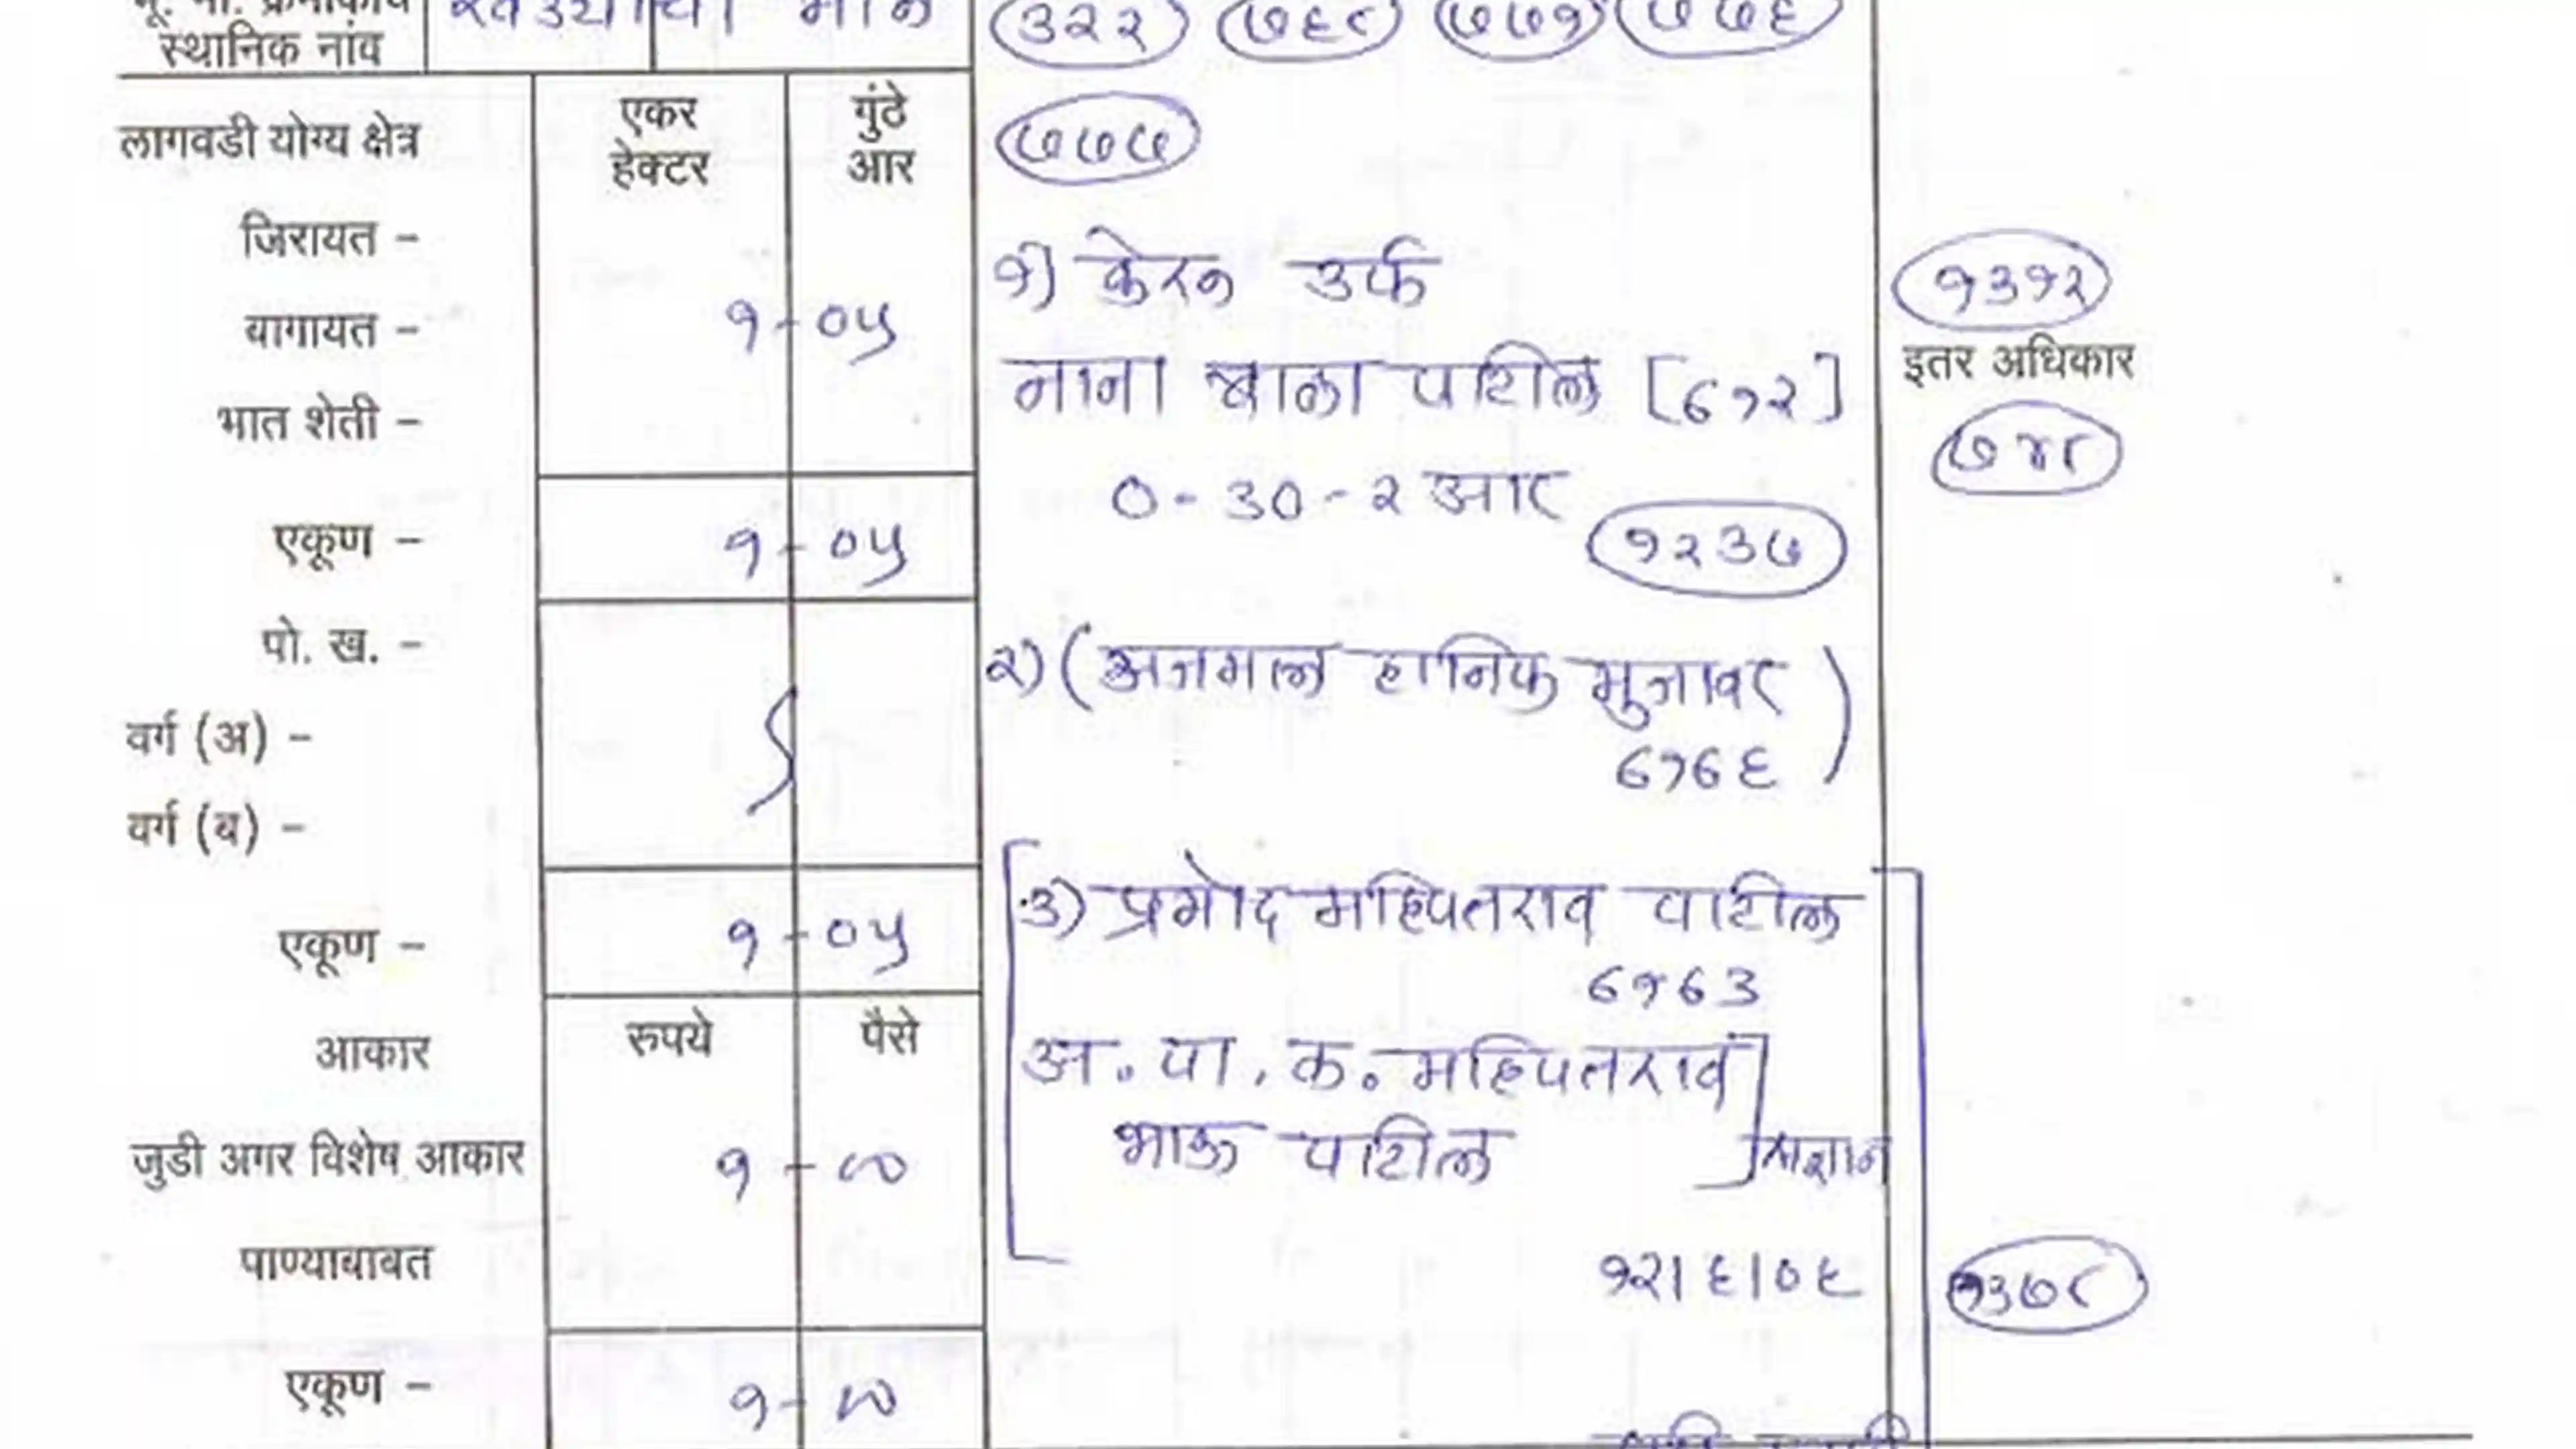 स्थानिक नांव
३२२ ७६८ ७७१ ७७६
लागवडी योग्य क्षेत्र
एकर
हेक्टर
गुंठे
आर
७७७
जिरायत -
बागायत - १ - ०५
भात शेती -
एकूण - १ - ०५
पो. ख. -
वर्ग (अ) -
वर्ग (ब) -
एकूण - १ - ०५
आकार रुपये पैसे
जुडी अगर विशेष आकार
पाण्याबाबत
एकूण -
१) केरू उर्फ
नाना बाळा पाटील [८१२]
०-३०-२ आर
१२३७
२) (अजमल हानिफ मुजावर
८१८६)
३) प्रमोद महिपतराव पाटील
८१८३
अ. पा. क. महिपतराव
भाऊ पाटील ] सज्ञान
१२।६।०६
१३१२
इतर अधिकार
७४८
१३७८